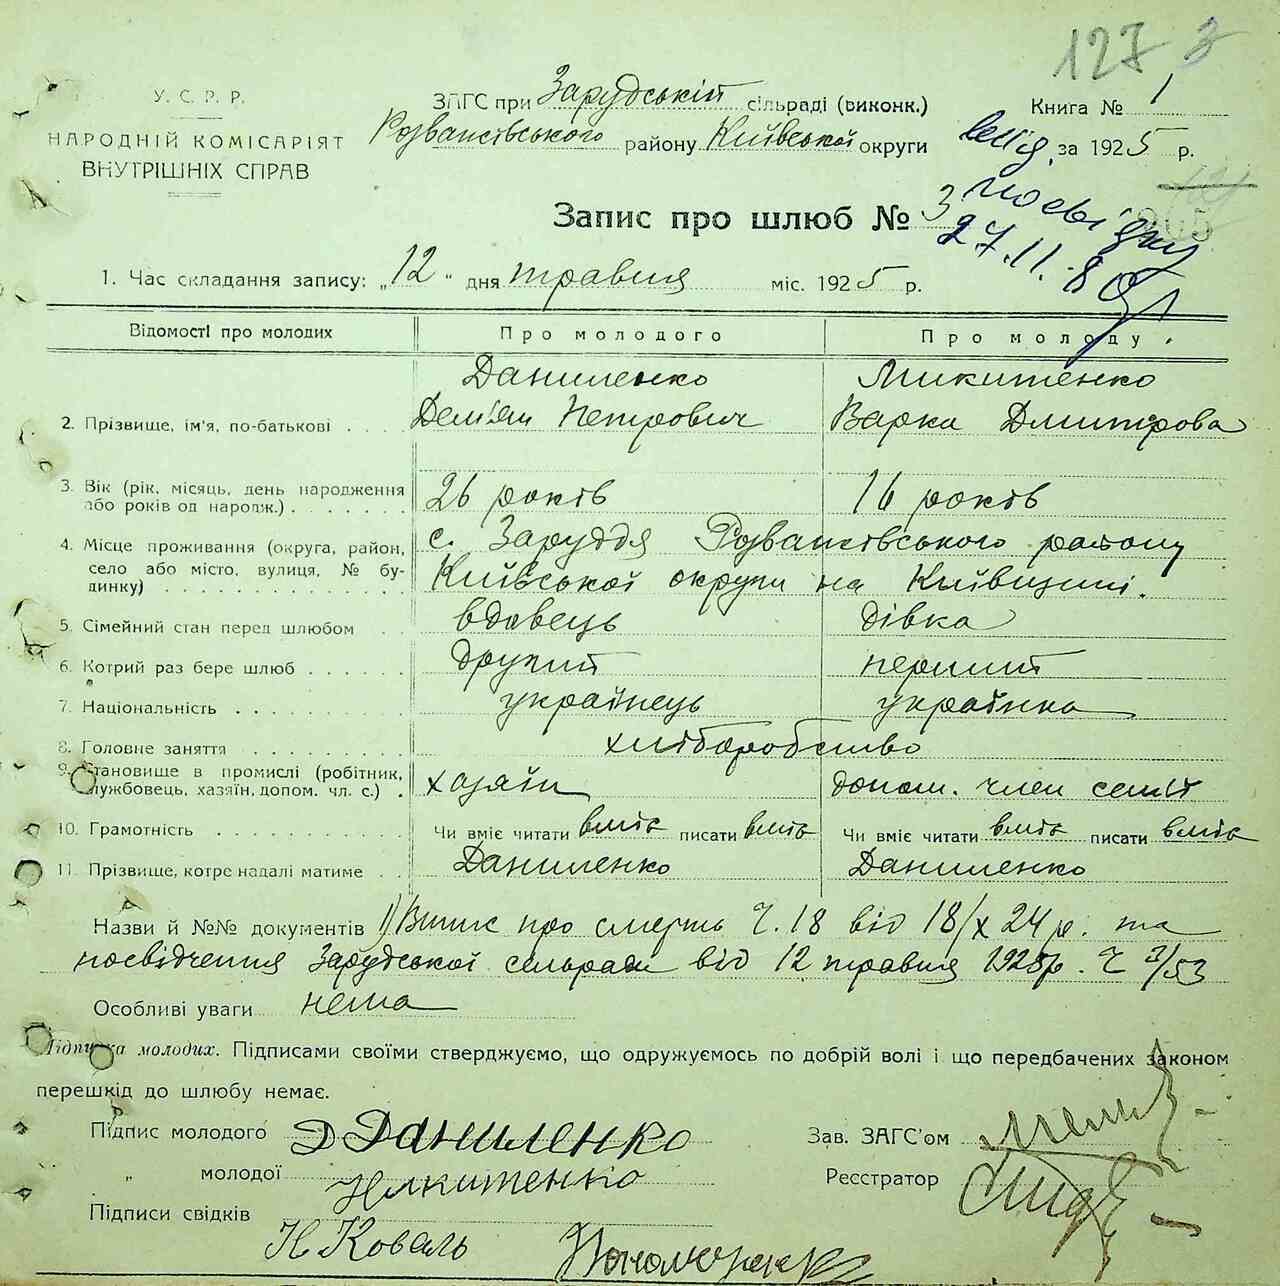 127 3
У. С. Р. Р.
НАРОДНІЙ КОМІСАРІЯТ
ВНУТРІШНІХ СПРАВ
ЗАГС при Зарудській сільраді (виконк.)
Розважівського району Київської округи
Книга № 1
за 1925 р.
посвідку
27.11.8
Запис про шлюб № 3
1. Час складання запису: „12" дня травня міс. 1925 р.
Відомості про молодих Про молодого Про молоду
Даниленко Микитенко
2. Прізвище, ім'я, по-батькові Дем'ян Петрович Варка Дмитрова
3. Вік (рік, місяць, день народження або років од народж.) 26 років 16 років
4. Місце проживання (округа, район, с. Заруддя Розважівського району
село або місто, вулиця, № будинку) Київської округи на Київщині.
5. Сімейний стан перед шлюбом вдовець дівка
6. Котрий раз бере шлюб другий перший
7. Національність українець українка
8. Головне заняття хліборобство
9. Становище в промислі (робітник, службовець, хазяїн, допом. чл. с.) хазяїн допом. член семії
10. Грамотність Чи вміє читати вміє писати вміє Чи вміє читати вміє писати вміє
11. Прізвище, котре надалі матиме Даниленко Даниленко
Назви й №№ документів 1) Випис про смерть Ч. 18 від 18/X 24 р. та
посвідчення Зарудської сільради від 12 травня 1925р. Ч /53
Особливі уваги нема
Підписка молодих. Підписами своїми стверджуємо, що одружуємось по добрій волі і що передбачених законом
перешкід до шлюбу немає.
Підпис молодого Д Даниленко
Зав. ЗАГС'ом
„ молодої Микитенко
Реєстратор
Підписи свідків
Н Коваль